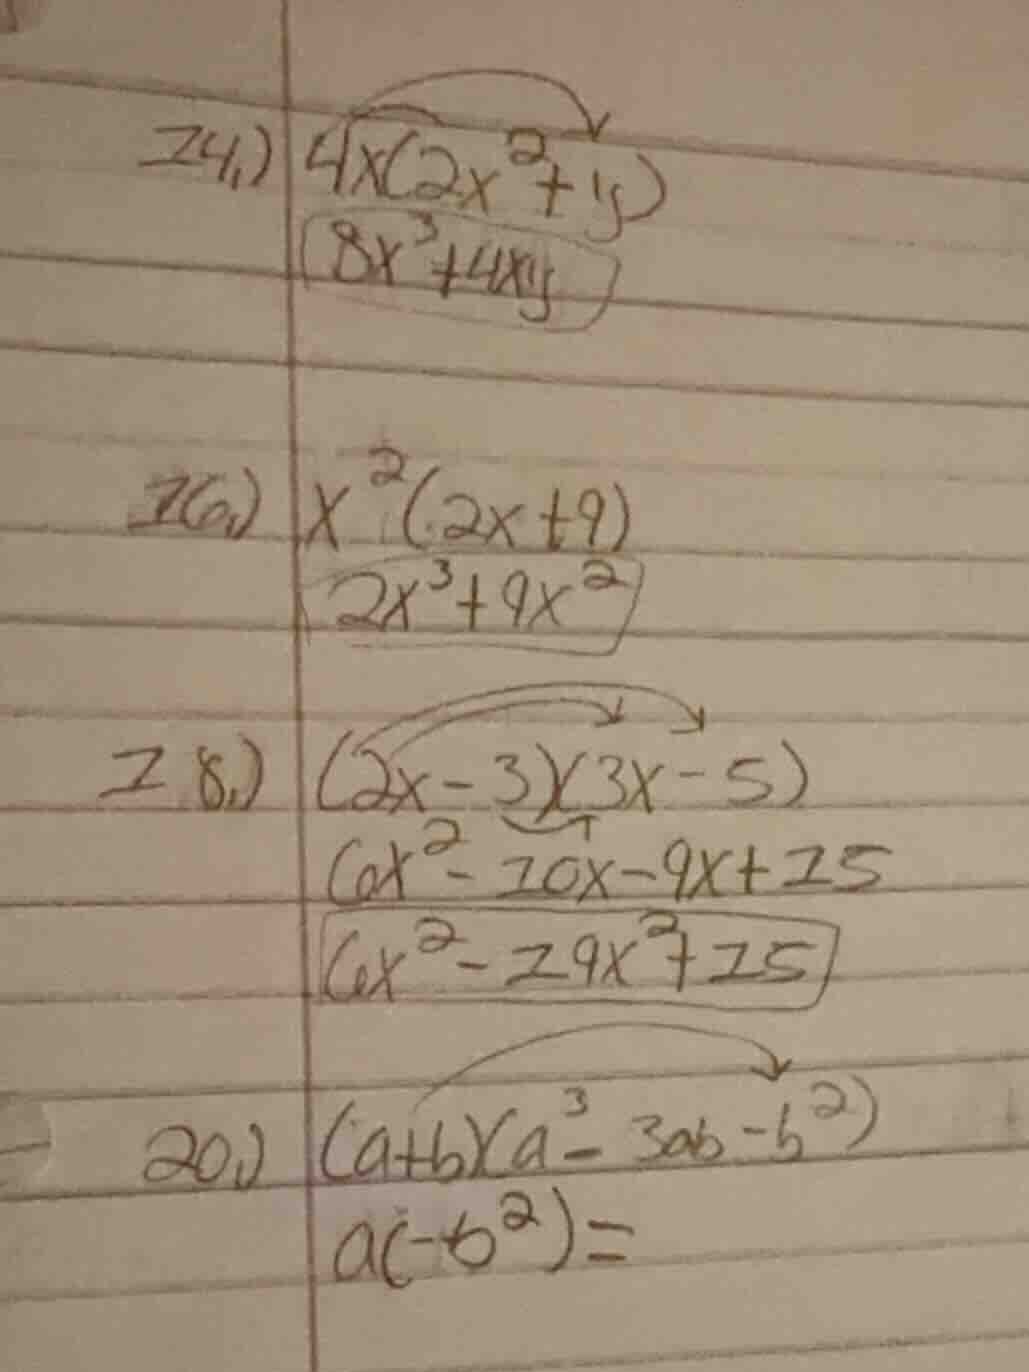 14.) 4x(2x²+y)
8x³+4xy
16.) x²(2x+9)
2x³+9x²
18.) (2x-3)(3x-5)
6x²-10x-9x+15
6x²-19x²+15
20.) (a+b)(a³-3ab-b²)
a(-b²)=